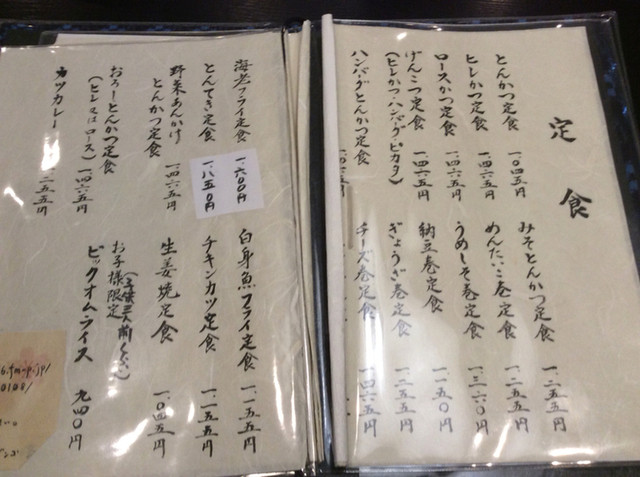 定食
とんかつ定食 一、〇四五円
ヒレかつ定食 一、四六五円
ロースかつ定食 一、四六五円
げんこつ定食 一、四六五円
(ヒレかつ・ハンバーグ・ピカタ)
ハンバーグとんかつ定食
みそとんかつ定食 一、二五五円
めんたいこ巻定食 一、二五五円
うめしそ巻定食 一、三六〇円
納豆巻定食 一、一五〇円
ぎょうざ巻定食 一、二五五円
チーズ巻定食 一、四六五円
海老フライ定食 一、六〇〇円
とんてき定食 一、八五〇円
野菜あんかけ
とんかつ定食 一、四六五円
おろしとんかつ定食
(ヒレ又はロース) 一、〇六五円
カツカレー 一、二五五円
白身魚フライ定食 一、一五五円
チキンカツ定食 一、一五五円
生姜焼定食 一、〇四五円
お子様限定
ビックオムライス 九四〇円